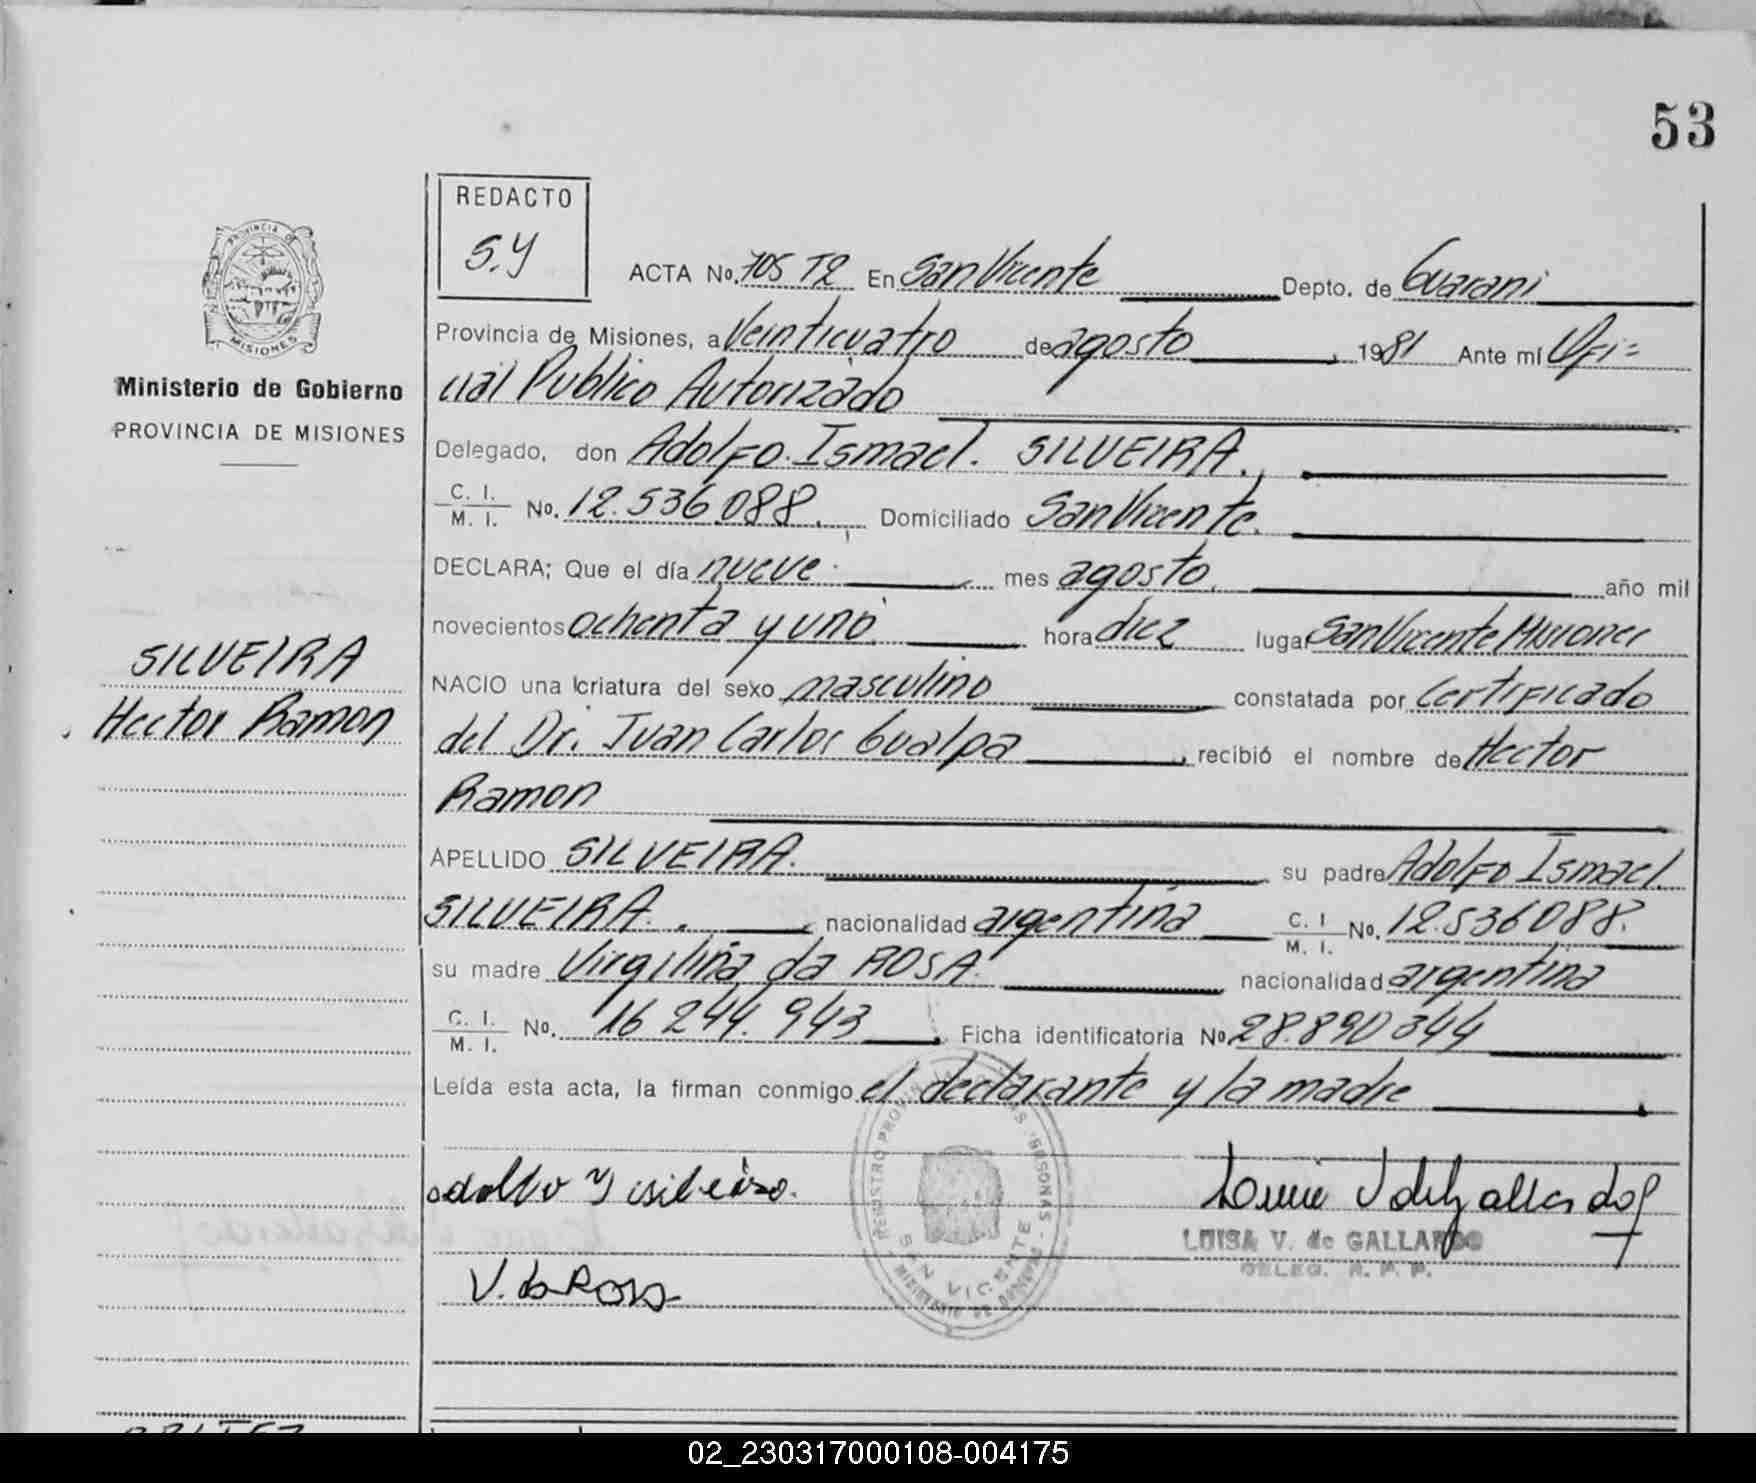 53
REDACTO
S.Y
ACTA No. 705 T2 En San Vicente Depto. de Guarani
Provincia de Misiones, a Veinticuatro de agosto 1981 Ante mí Ofi=
cial Publico Autorizado
Delegado, don Adolfo Ismael. SILVEIRA.
C. I.
M. I. No. 12.536.088. Domiciliado San Vicente.
DECLARA; Que el día nueve mes agosto año mil
novecientos ochenta y uno hora diez lugar San Vicente Misiones
NACIO una criatura del sexo masculino constatada por Certificado
del Dr. Juan Carlos Gualpa recibió el nombre de Hector
Ramon
APELLIDO SILVEIRA. su padre Adolfo Ismael.
SILVEIRA. nacionalidad argentina C. I M. I. No. 12.536088.
su madre Virgiliña da ROSA. nacionalidad argentina
C. I.
M. I. No. 16 244. 943 Ficha identificatoria No 28.890 344
Leída esta acta, la firman conmigo el declarante y la madre
PROVINCIA DE
MISIONES
Ministerio de Gobierno
PROVINCIA DE MISIONES
SILVEIRA
Hector Ramon
adolfo Y silveira.
V. da Rosa
SAN VICENTE
LUISA V. de GALLARDO
DELEG. R. P. P.
02_230317000108-004175